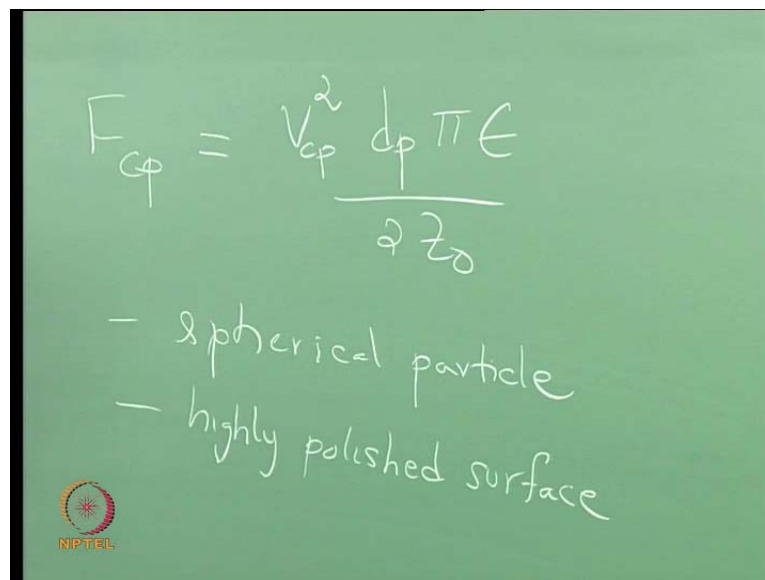 F_cp = V_cp^2 d_p π ϵ
2 Z_0
- spherical particle
- highly polished surface
NPTEL